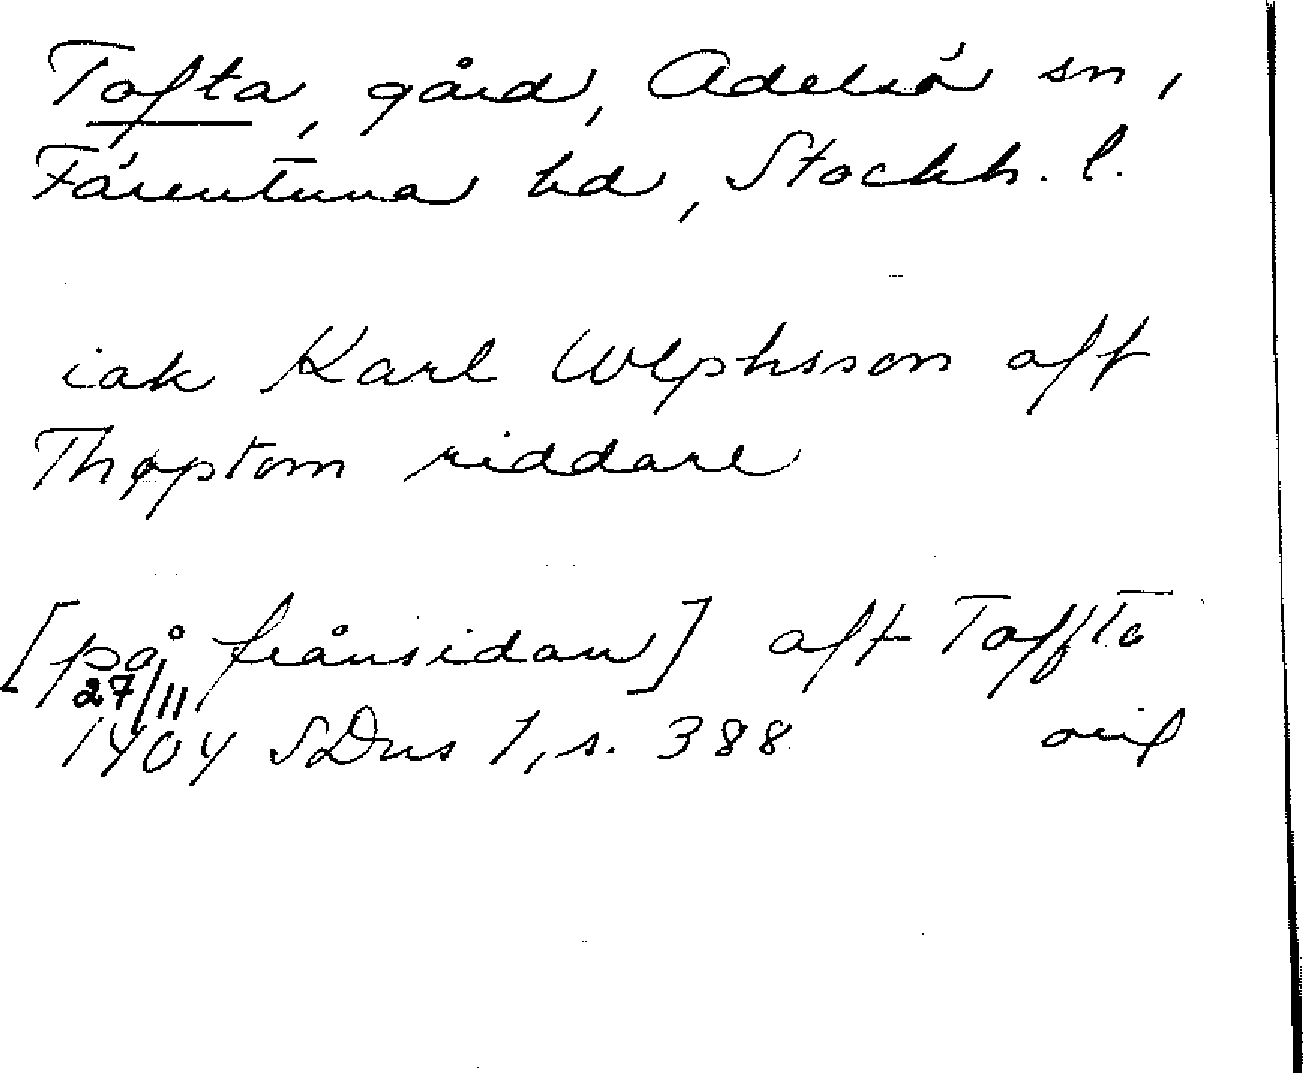 Tofta, gård, Adelsö sn,
Färentuna hd, Stockh. l.
iak Karl Wlphsson aff
Thøptom riddare
[på frånsidan] aff Toffta
27/11
1404 SDns 1, s. 388 orig